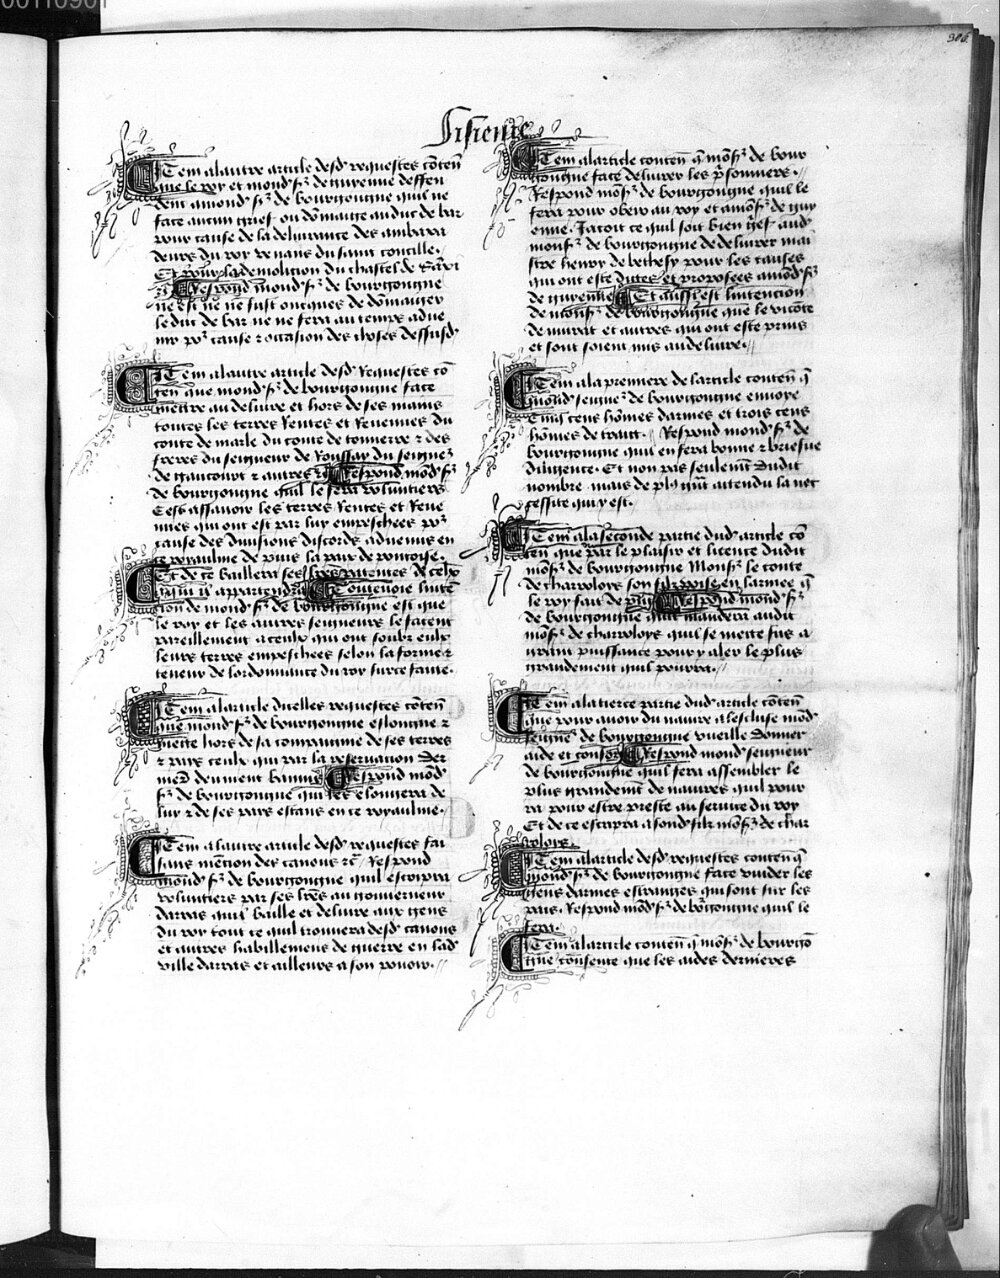 00110901
306
Item a lautre article desd' requestes cōten̄
que le roy et mond' sr de guyenne deffen
dent a mond' sr de bourgongne quil ne
face aucun grief ou dōmaige au duc de bar
pour cause de la delivrance des ambaxa
deurs du roy venans du saint concille.
Et pour la demolicion du chastel de
Respond mond' sr de bourgongne
ne est ne ne fust oncques de dōmager
le duc de bar ne ne fera au temps adve
nir por cause 2 occasion des choses dessusd'
Item a lautre article desd' Requestes cō
ten̄ que mond' sr de bourgongne face
mettre au delivre et hors de ses mains
toutes les terres Rentes et Revenues du
conte de marle du conte de tonnerre 2 des
freres du seigneur de Roussay du seigneur
de gaucourt 2 autres Respond mod' sr
de bourgongne quil le fera voluntiers
Cest assavoir les terres Rentes et Reve
nues qui ont este par luy empeschees por
cause des divisions discords advenus en
ce royaulme de puis la paix de pontoise.
Et de ce baillera ses lrēs patentes a ceulx
a qui il appartendra Et toutevoie linten
cion de mond' sr de bourgongne est que
le roy et les autres seigneurs le facent
pareillement a ceulx qui ont soubz eulx
leurs terres empeschees selon la forme 2
teneur de lordonnance du roy sur ce faicte.
Item a larticle dicelles requestes cōten̄
que mond' sr de bourgongne eslongne 2
mette hors de sa compaignie de ses terres
2 pays ceulx qui par la reservation der
men̄ devment bannis Respond mod'
sr de bourgongne quil les elongera de
luy 2 de ses pays estans en ce royaulme.
Item a lautre article desd' requestes fai
sans mēncion des canons 2c Respond
mond' sr de bourgongne quil escripra
voluntiers par ses lrēs au gouverneur
darras quil baille et delivre aux gens
du roy tout ce quil trouvera desd' canons
et autres habillemens de guerre en lad'
ville darras et ailleurs a son povoir.
Item a larticle conten̄ q̄ mōsr de bour
gongne face delivrer les prisonniers.
Respond mōsr de bourgongne quil le
fera pour obeir au roy et a mōsr de guy
enne. Jacoit ce quil soit bien grief aud'
mons' de bourgongne de delivrer mai
stre henry de bethesy pour les causes
qui ont este dictes et proposees a mod' sr
de guyenne Et aussi est lintencion
de mons' de bourgongne que le viconte
de murat et autres qui ont este prins
et sont soient mis au delivre.
Item a la premiere de larticle conten̄ q̄
mond' seigner de bourgongne envoye
Cinq cens hōmes darmes et trois cens
hōmes de trait. Respond mond' sr de
bourgongne quil en fera bonne 2 briefve
diligence. Et non pas seulemēt dudit
nombre mais de plus grāt attendu la ne
cessite qui y est.
Item a la seconde partie dud' article cō
ten̄ que par le plaisir et licence dudit
mōsr de bourgongne Monsr le conte
de charroloys son filz voise en larmee q̄
le roy fait de pnt Respond mond' sr
de bourgongne quil mandera audit
mōsr de charroloys quil se mette sus a
grant puissance pour y aler le plus
grandement quil pourra.
Item a la tierce partie dud' article cōten̄
que pour avoir du navire a lescluse mod'
seigner de bourgongne vueille donner
aide et confort Respond mond' seigneur
de bourgongne quil fera assembler le
plus grandemēt de navires quil pour
ra pour estre preste au service du roy
Et de ce escripra a sond' filz mōsr de char
roloys.
Item a larticle desd' requestes conten̄ q̄
mond' sr de bourgongne face vuider les
gens darmes estranges qui sont sur les
pais. Respond mōd' sr de bōrgongne quil le
fera.
Item a larticle conten̄ q̄ mōsr de bourgō
gne consente que les aides dernieres